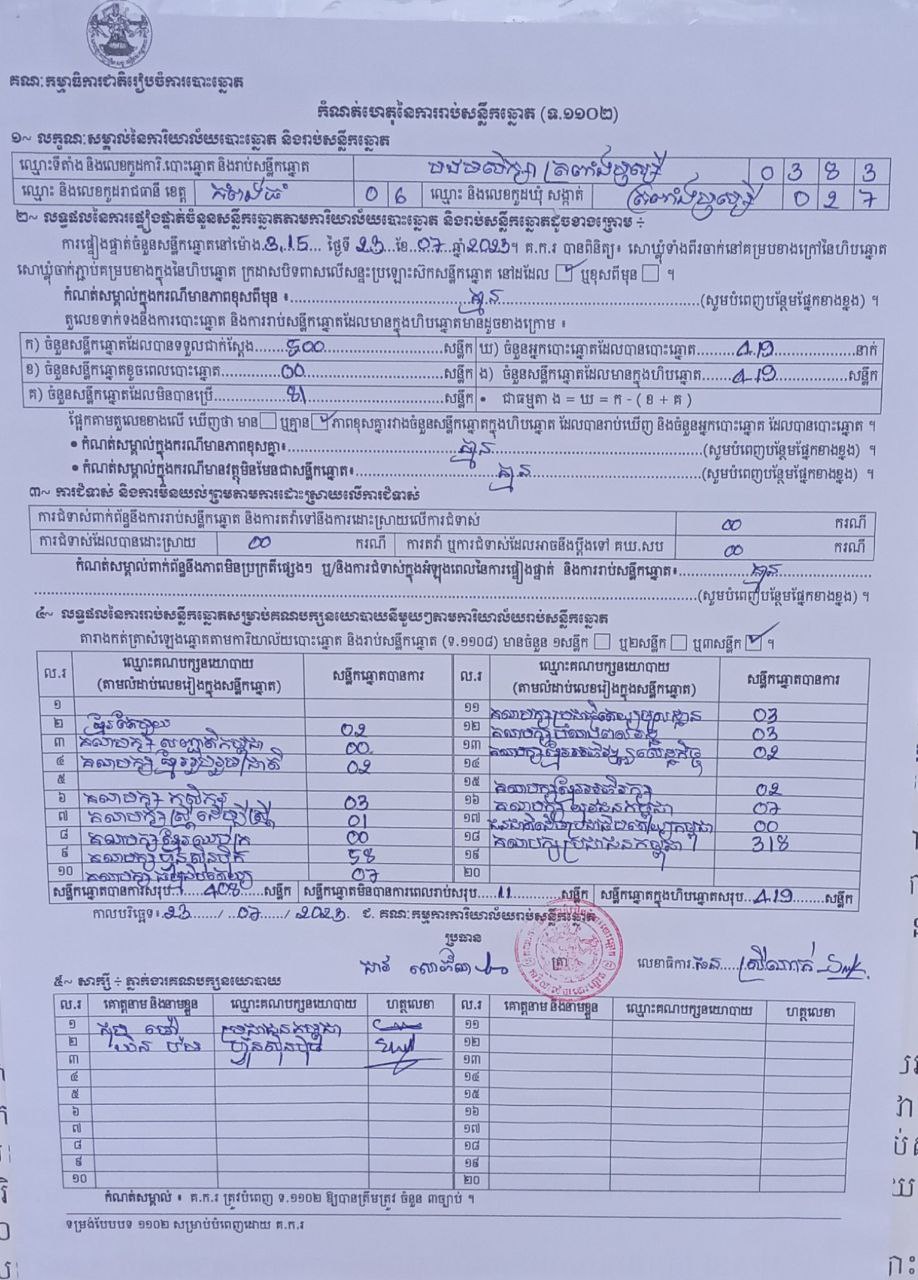 គណៈកម្មាធិការជាតិរៀបចំការបោះឆ្នោត
កំណត់ហេតុនៃការរាប់សន្លឹកឆ្នោត (ទ.១១០២)
១~ លក្ខណៈសម្គាល់នៃការិយាល័យបោះឆ្នោត និងរាប់សន្លឹកឆ្នោត
ឈ្មោះទីតាំង និងលេខកូដការិ.បោះឆ្នោត និងរាប់សន្លឹកឆ្នោត 0 3 8 3
ឈ្មោះ និងលេខកូដរាជធានី ខេត្ត កំពង់ធំ 0 6 ឈ្មោះ និងលេខកូដឃុំ សង្កាត់ ត្រពាំងឫស្សី 0 2 7
២~ លទ្ធផលនៃការផ្ទៀងផ្ទាត់ចំនួនសន្លឹកឆ្នោតតាមការិយាល័យបោះឆ្នោត និងរាប់សន្លឹកឆ្នោតដូចខាងក្រោម ÷
ការផ្ទៀងផ្ទាត់ចំនួនសន្លឹកឆ្នោតនៅម៉ោង 3.15 ថ្ងៃទី 23 ខែ 07 ឆ្នាំ 2023។ គ.ក.រ បានពិនិត្យ៖ សោឃ្លុំទាំងពីរចាក់នៅគម្របខាងក្រៅនៃហិបឆ្នោត
សោឃ្លុំចាក់ភ្ជាប់គម្របខាងក្នុងនៃហិបឆ្នោត ក្រដាសបិទពាសលើសន្ទះប្រឡោះស៊កសន្លឹកឆ្នោត នៅដដែល ☑ ឬខុសពីមុន ☐ ។
កំណត់សម្គាល់ក្នុងករណីមានភាពខុសពីមុន ៖ គ្មាន (សូមបំពេញបន្ថែមផ្នែកខាងខ្នង) ។
តួលេខទាក់ទងនឹងការបោះឆ្នោត និងការរាប់សន្លឹកឆ្នោតដែលមានក្នុងហិបឆ្នោតមានដូចខាងក្រោម ៖
ក) ចំនួនសន្លឹកឆ្នោតដែលបានទទួលជាក់ស្តែង 500 សន្លឹក ឃ) ចំនួនអ្នកបោះឆ្នោតដែលបានបោះឆ្នោត 419 នាក់
ខ) ចំនួនសន្លឹកឆ្នោតខូចពេលបោះឆ្នោត 00 សន្លឹក ង) ចំនួនសន្លឹកឆ្នោតដែលមានក្នុងហិបឆ្នោត 419 សន្លឹក
គ) ចំនួនសន្លឹកឆ្នោតដែលមិនបានប្រើ 81 សន្លឹក • ជាធម្មតា ង = ឃ = ក - ( ខ + គ )
ផ្អែកតាមតួលេខខាងលើ ឃើញថា មាន ☐ ឬគ្មាន ☑ ភាពខុសគ្នារវាងចំនួនសន្លឹកឆ្នោតក្នុងហិបឆ្នោត ដែលបានរាប់ឃើញ និងចំនួនអ្នកបោះឆ្នោត ដែលបានបោះឆ្នោត ។
• កំណត់សម្គាល់ក្នុងករណីមានភាពខុសគ្នា៖ គ្មាន (សូមបំពេញបន្ថែមផ្នែកខាងខ្នង) ។
• កំណត់សម្គាល់ក្នុងករណីមានវត្ថុមិនមែនជាសន្លឹកឆ្នោត៖ គ្មាន (សូមបំពេញបន្ថែមផ្នែកខាងខ្នង) ។
៣~ ការជំទាស់ និងការមិនយល់ព្រមតាមការដោះស្រាយលើការជំទាស់
ការជំទាស់ពាក់ព័ន្ធនឹងការរាប់សន្លឹកឆ្នោត និងការតវ៉ាទៅនឹងការដោះស្រាយលើការជំទាស់ 00 ករណី
ការជំទាស់ដែលបានដោះស្រាយ 00 ករណី ការតវ៉ា ឬការជំទាស់ដែលអាចនឹងប្តឹងទៅ គឃ.សប 00 ករណី
កំណត់សម្គាល់ពាក់ព័ន្ធនឹងភាពមិនប្រក្រតីផ្សេងៗ ឬ/និងការជំទាស់ក្នុងអំឡុងពេលនៃការផ្ទៀងផ្ទាត់ និងការរាប់សន្លឹកឆ្នោត៖ គ្មាន
(សូមបំពេញបន្ថែមផ្នែកខាងខ្នង) ។
៤~ លទ្ធផលនៃការរាប់សន្លឹកឆ្នោតសម្រាប់គណបក្សនយោបាយនីមួយៗតាមការិយាល័យរាប់សន្លឹកឆ្នោត
តារាងកត់ត្រាសំឡេងឆ្នោតតាមការិយាល័យបោះឆ្នោត និងរាប់សន្លឹកឆ្នោត (ទ.១១០៨) មានចំនួន ១សន្លឹក ☐ ឬ២សន្លឹក ☐ ឬ៣សន្លឹក ☑ ។
ល.រ ឈ្មោះគណបក្សនយោបាយ (តាមលំដាប់លេខរៀងក្នុងសន្លឹកឆ្នោត) សន្លឹកឆ្នោតបានការ ល.រ ឈ្មោះគណបក្សនយោបាយ (តាមលំដាប់លេខរៀងក្នុងសន្លឹកឆ្នោត) សន្លឹកឆ្នោតបានការ
១ ១១ គណបក្សប្រជាធិបតេយ្យមូលដ្ឋាន 03
២ ខ្មែរតែមួយ 02 ១២ 03
៣ គណបក្ស សញ្ជាតិកម្ពុជា 00 ១៣ 02
៤ គណបក្សខ្មែររួបរួមជាតិ 02 ១៤
៥ ១៥ គណបក្សខ្មែរអភិរក្ស 02
៦ គណបក្ស កសិករ 03 ១៦ គណបក្ស យុវជនកម្ពុជា 07
៧ គណបក្ស ស្ត្រីដើម្បីស្ត្រី 01 ១៧ 00
៨ គណបក្សខ្មែរឈប់ក្រ 00 ១៨ គណបក្សប្រជាជនកម្ពុជា 318
៩ គណបក្សហ៊្វុនស៊ិនប៉ិច 58 ១៩
១០ 07 ២០
សន្លឹកឆ្នោតបានការសរុប 408 សន្លឹក សន្លឹកឆ្នោតមិនបានការពេលរាប់សរុប 11 សន្លឹក សន្លឹកឆ្នោតក្នុងហិបឆ្នោតសរុប 419 សន្លឹក
កាលបរិច្ឆេទ៖ 23 / 07 / 2023 ជ. គណៈកម្មការការិយាល័យរាប់សន្លឹកឆ្នោត
ប្រធាន
ត្រា
លេខាធិការ
៥~ សាក្សី ÷ ភ្នាក់ងារគណបក្សនយោបាយ
ល.រ គោត្តនាម និងនាមខ្លួន ឈ្មោះគណបក្សនយោបាយ ហត្ថលេខា ល.រ គោត្តនាម និងនាមខ្លួន ឈ្មោះគណបក្សនយោបាយ ហត្ថលេខា
១ ប្រជាជនកម្ពុជា ១១
២ ហ៊្វុនស៊ិនប៉ិច ១២
៣ ១៣
៤ ១៤
៥ ១៥
៦ ១៦
៧ ១៧
៨ ១៨
៩ ១៩
១០ ២០
កំណត់សម្គាល់ ៖ គ.ក.រ ត្រូវបំពេញ ទ.១១០២ ឱ្យបានត្រឹមត្រូវ ចំនួន ៣ច្បាប់ ។
ទម្រង់បែបបទ ១១០២ សម្រាប់បំពេញដោយ គ.ក.រ